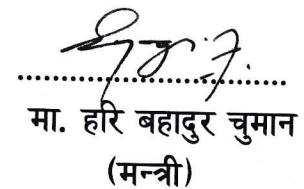 मा. हरि बहादुर चुमान
(मन्त्री)